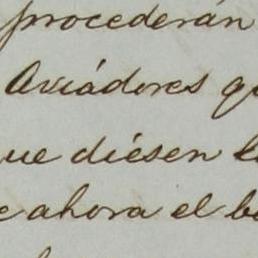 procederán
Aviadores q
ue diésen l
e ahora el b